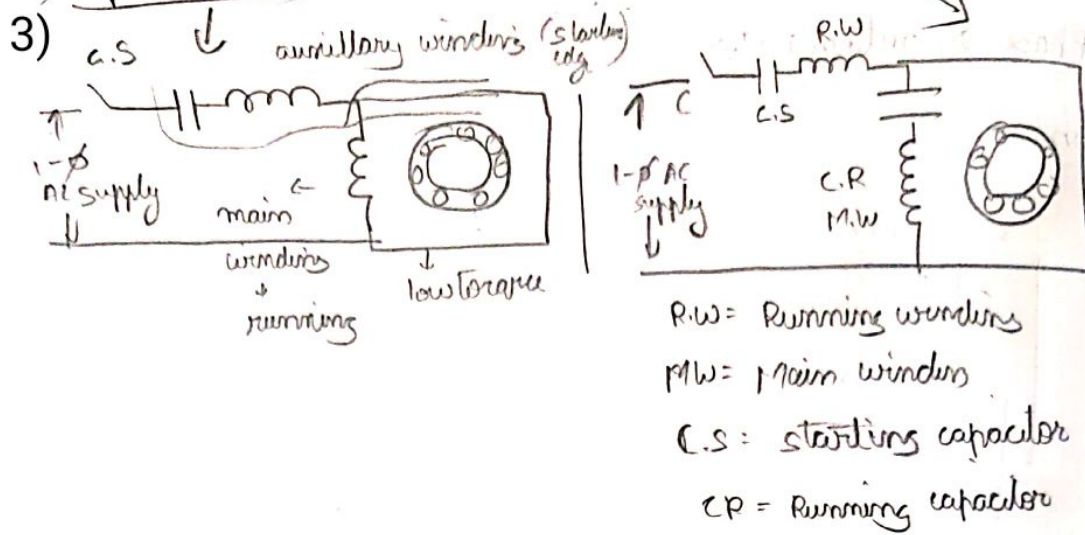 3)
C.S
auxillary winding (starting
1-ϕ
AC supply
main
winding
running
low torque
R.W
C
C.S
1-ϕ AC
supply
C.R
M.W
R.W = Running winding
MW = Main winding
C.S = starting capacitor
CR = Running capacitor